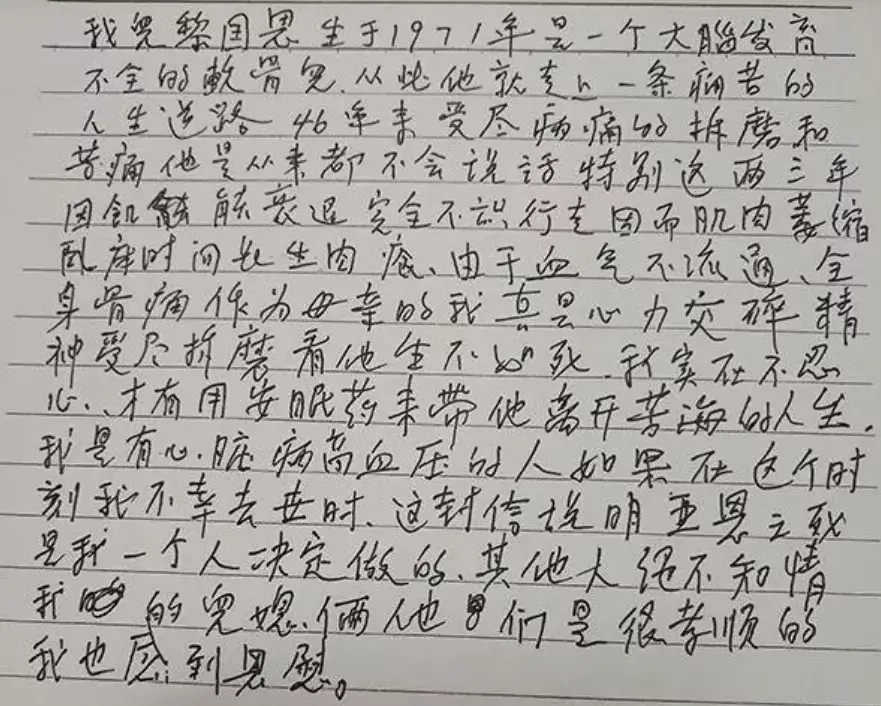 我兒黎因恩生于1971年是一个大腦发育
不全的軟骨兒.从此他就走上一条痛苦的
人生道路46年来受尽病痛的折磨和
苦痛他是从来都不会说话特别这两三年
因飢能衰退完全不識行走因而肌肉萎缩
臥床时间长生肉瘡、由于血气不流通、全
身骨痛作为母亲的我真是心力交碎精
神受尽折磨看他生不如死.我实在不忍
心、才有用安眠药来带他离开苦海的人生.
我是有心脏病高血压的人如果在这个时
刻我不幸去世时、这封信说明亚恩之死
是我一个人决定做的、其他人绝不知情
我的兒媳俩他们是很孝顺的
我也感到恩慰。